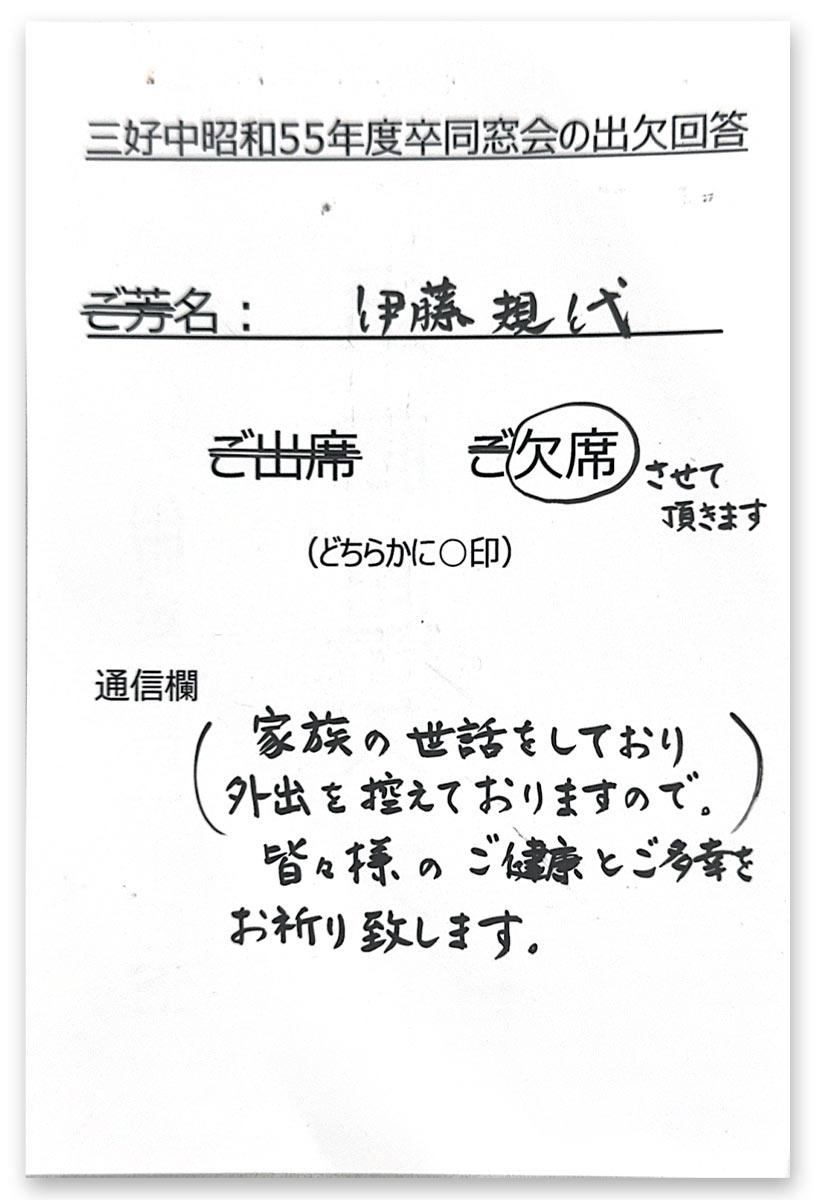 三好中昭和55年度卒同窓会の出欠回答
ご芳名： 伊藤規代
ご出席 ご欠席 させて
頂きます
（どちらかに○印）
通信欄
（家族の世話をしており
外出を控えておりますので。）
皆々様のご健康とご多幸を
お祈り致します。